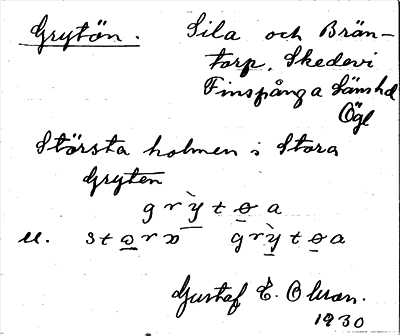 Grytön. Sila och Brän-
torp, Skedevi
Finspånga länshd
Ögl
Största holmen i Stora
Gryten
g r ỳ t ɵ a
u. s t o r a g r ỳ t ɵ a
Gustaf E. Olsson.
1930